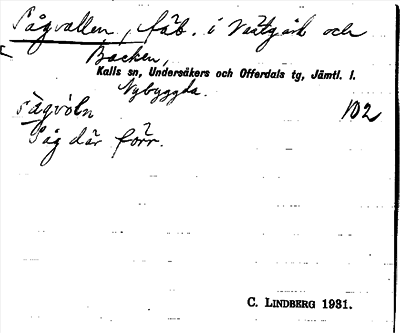 Sågvallen, fäb. i Västgård och
Backen,
Kalls sn, Undersåkers och Offerdals tg, Jämtl. l.
Nybyggda.
sågvɔ́ln 102
Såg där förr.
C. LINDBERG 1931.